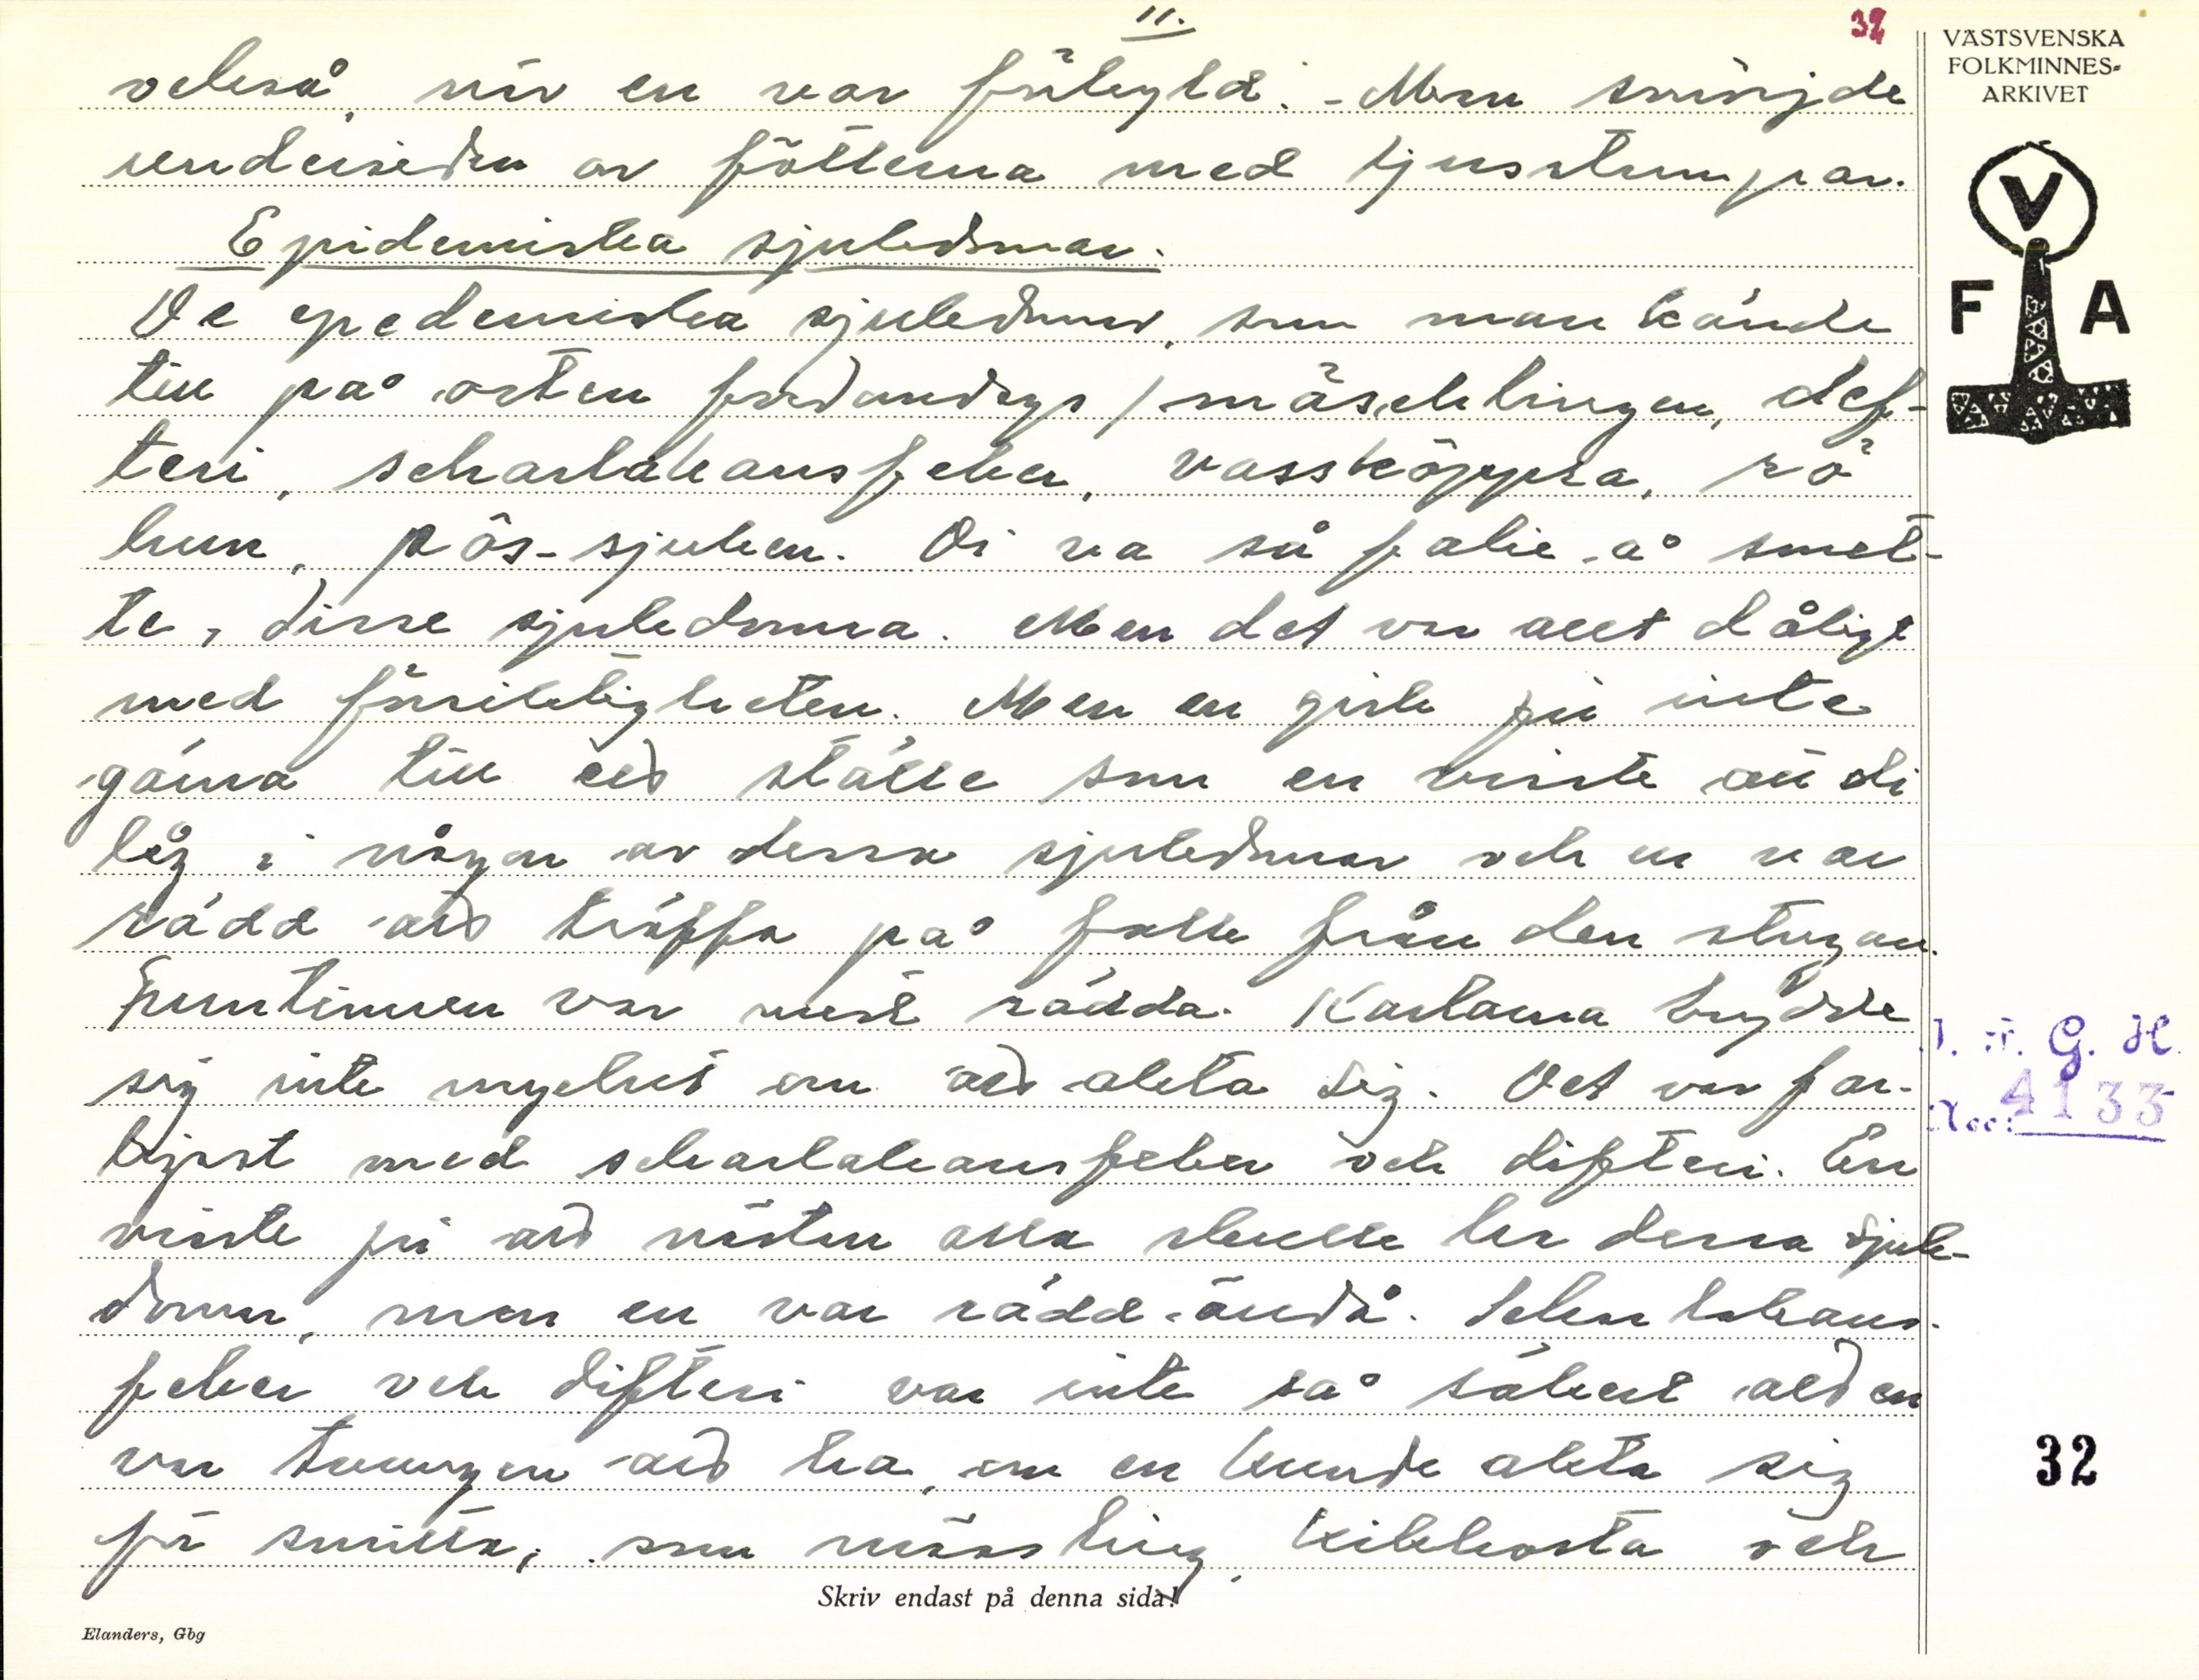 11.
32
VÄSTSVENSKA
FOLKMINNES-
ARKIVET
V
F A
också, när en var förkyld. - Men smörjde
undersidan av fötterna med ljusstumpar.
Epidemiska sjukdomar.
De epedemiska sjukdomar, som man kände
till på orten fordomdags / mäschlingen, def-
teri, scharlakansfeber, vassköppra, rö
hun, pös-sjuken. Di va så falie å smet-
te, disse sjukdomma. Men det var allt dåligt
med försiktigheten. Men en gick ju inte
gärna till ett ställe som en visste att di
låg i någon av dessa sjukdomar och en var
rädd att träffa på folk från den stugan.
Fruntimmen var mest rädda. Karlarna brydde
sig inte mycket om att akta sig. Det var far-
ligast med scharlakansfeber och difteri. En
visste ju att nästan alla skulle ha dessa sjuk-
domar, men en var rädd ändå. Scharlakans-
feber och difteri var inte så säkert att en
var tvungen att ha, om en kunde akta sig
för smitta, som mässling, kikhosta och
G. H.
4133
Acc:
32
Skriv endast på denna sida!
Elanders, Gbg